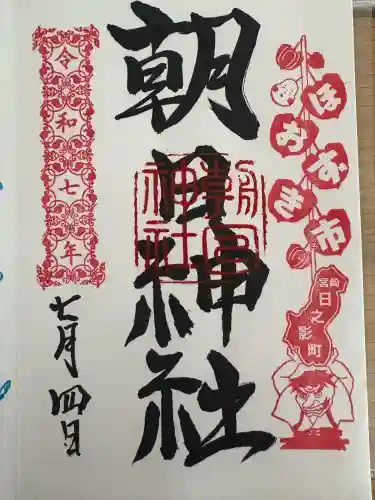 ほおずき市
宮崎
日之影町
朝日神社
令和七年
七月四日